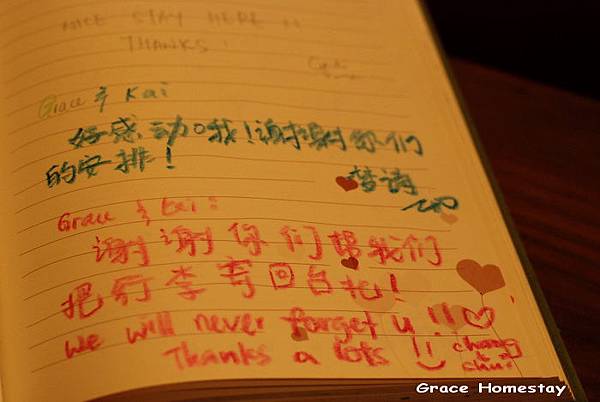 NICE STAY HERE !!
THANKS!
Grace & Kai
好感动哦！谢谢你们
的安排！
梦诗
Grace & Kai:
谢谢你们帮我们
把行李寄回台北！
we will never forget u!! ♡
Thanks a lots
chang
chui
Grace Homestay